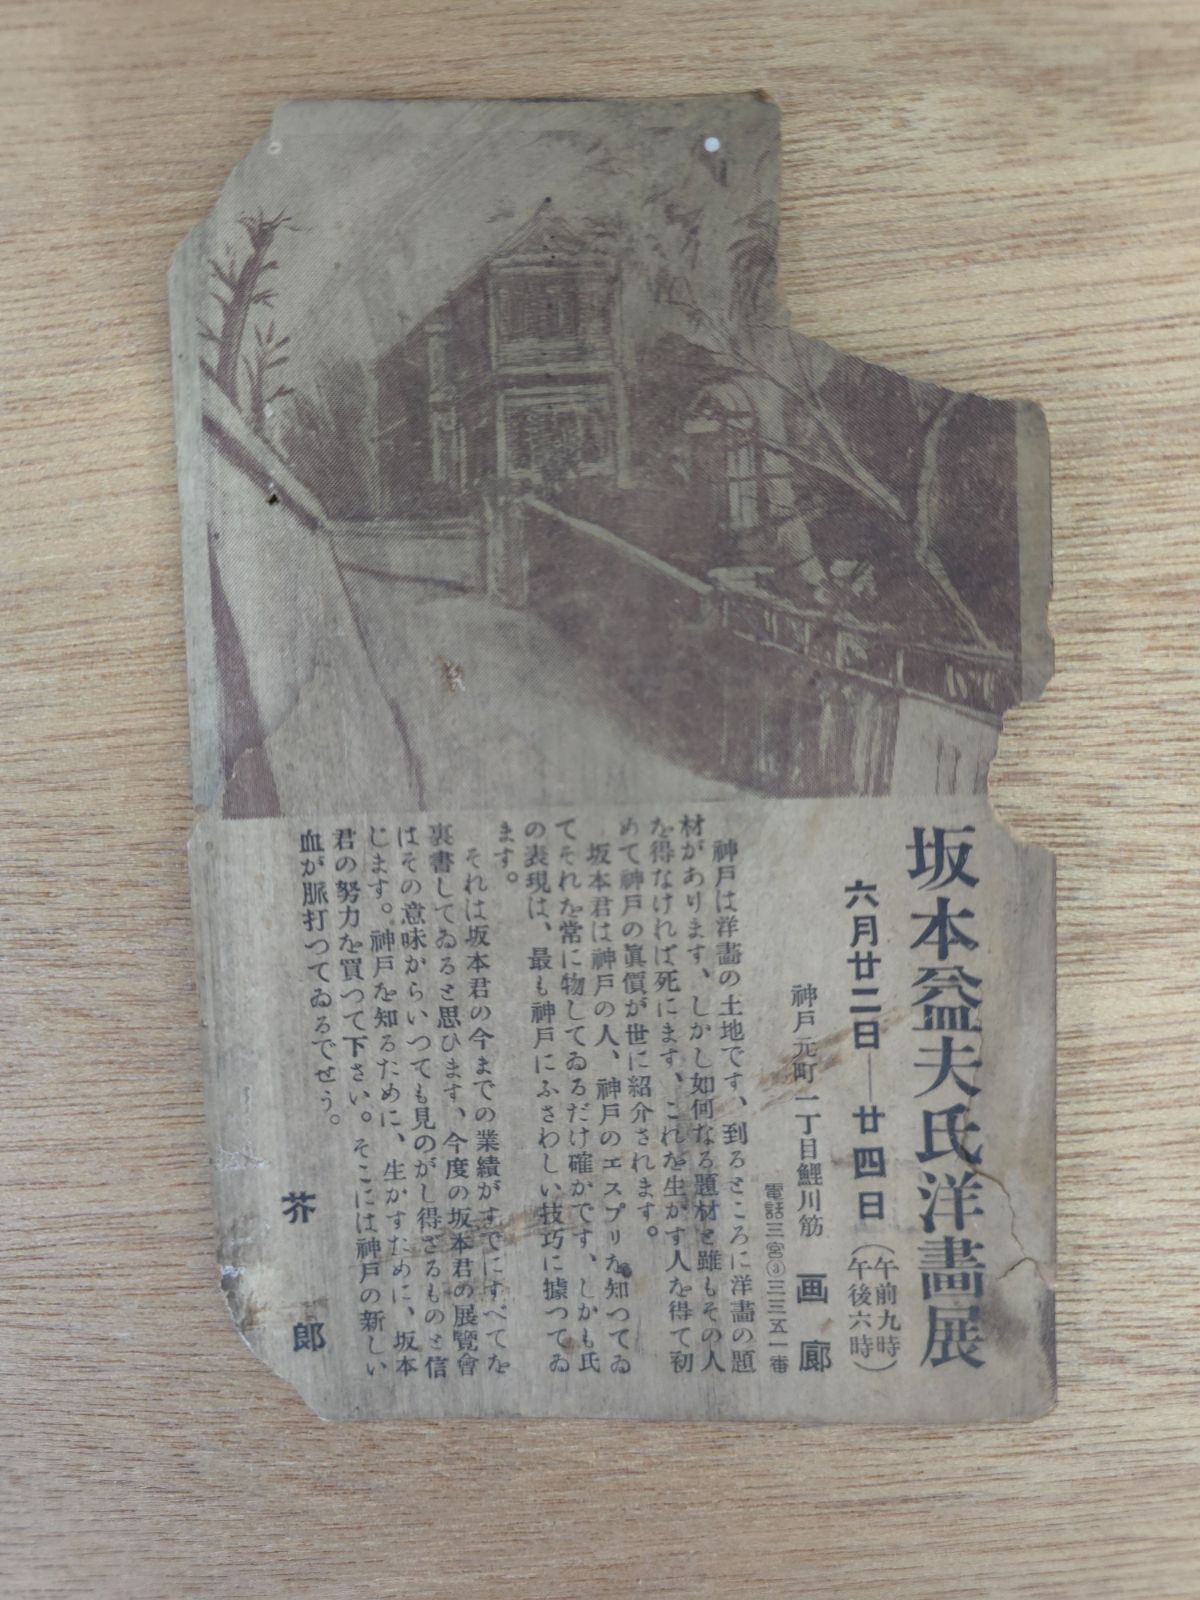 坂本益夫氏洋畵展
六月廿二日——廿四日（午前九時午後六時）
神戸元町一丁目鯉川筋　画廊
電話三宮③三三五一番
神戸は洋畵の土地です、到るところに洋畵の題
材があります、しかし如何なる題材と雖もその人
を得なければ死にます、これを生かす人を得て初
めて神戸の眞價が世に紹介されます。
坂本君は神戸の人、神戸のエスプリを知つてゐ
てそれを常に物してゐるだけ確かです、しかも氏
の表現は、最も神戸にふさわしい技巧に據つてゐ
ます。
それは坂本君の今までの業績がすでにすべてを
裏書してゐると思ひます、今度の坂本君の展覽會
はその意味からいつても見のがし得ざるものと信
じます。神戸を知るために、生かすために、坂本
君の努力を買つて下さい。そこには神戸の新しい
血が脈打つてゐるでせう。
芥郎